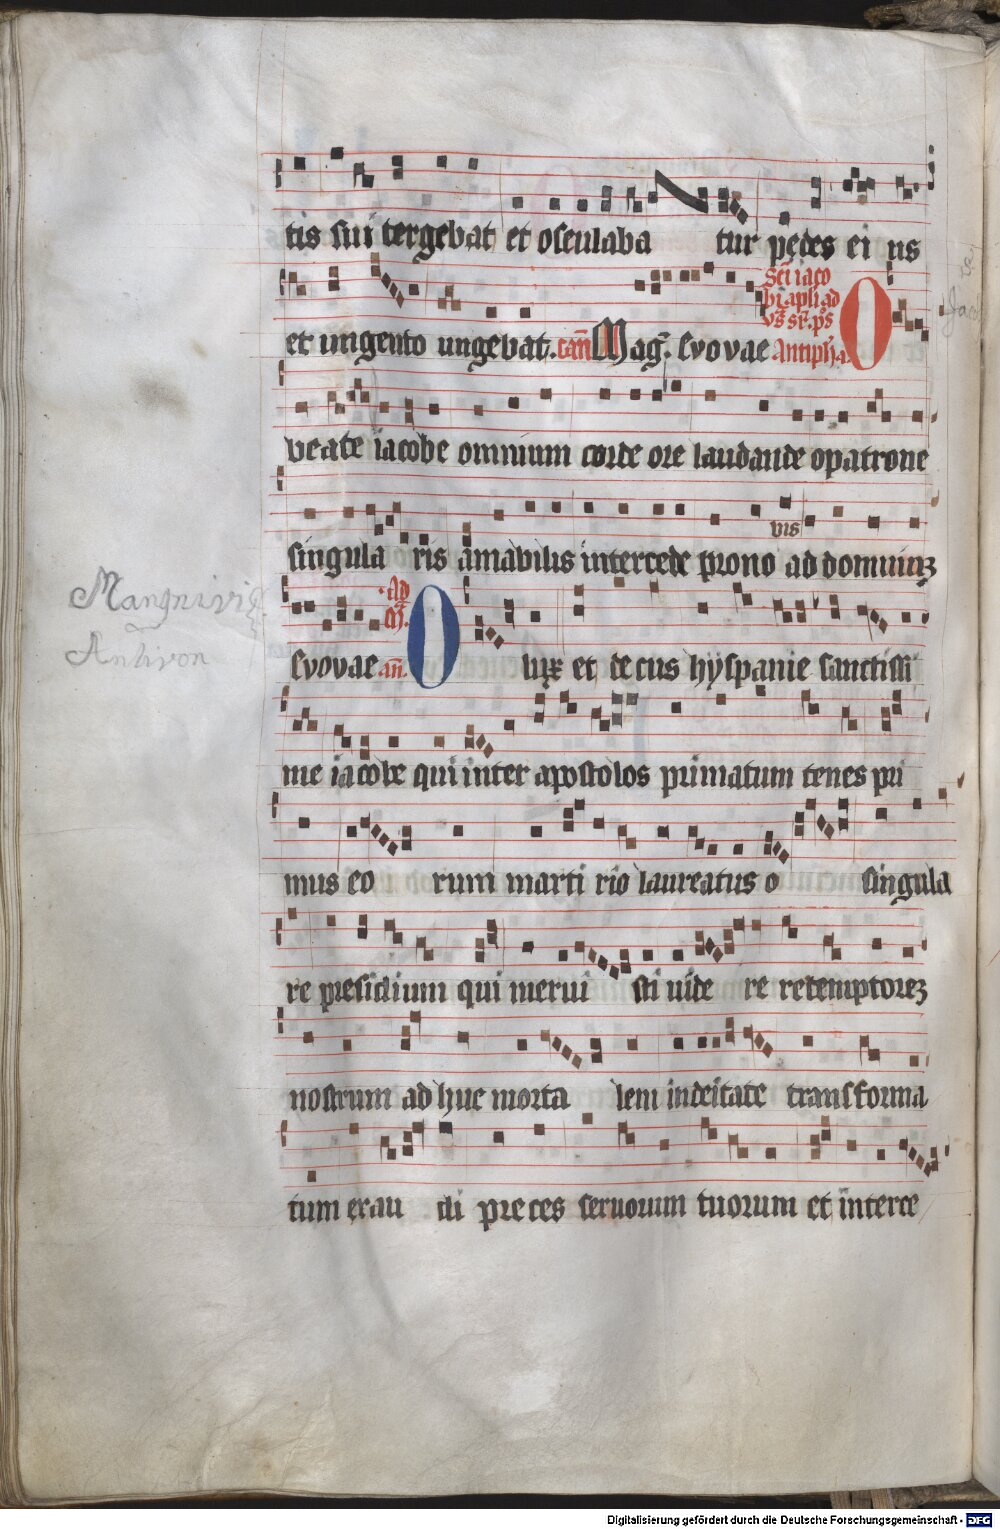 tis sui tergebat et osculaba tur pedes ei us
sc̄i iaco
bi apl̄i ad
vs̄ sr̄. ps̄
et ungento ungebat. can̄ Mag̃. Evovae Antiph̄a. O
veate iacobe omnium corde ore laudande o patrone
vis
singula ris amabilis intercede prono ad dominuꝫ
Mangnivi
Antivon
Ad
Evovae an̄. O lux et decus hyspanie sanctissi
me iacobe qui inter apostolos primatum tenes pri
mus eo rum marti rio laureatus o singula
re presidium qui merui sti uide re redemptoreꝫ
nostrum ad huc morta lem in deitate transforma
tum exau di pre ces seruorum tuorum et interce
Digitalisierung gefördert durch die Deutsche Forschungsgemeinschaft - DFG